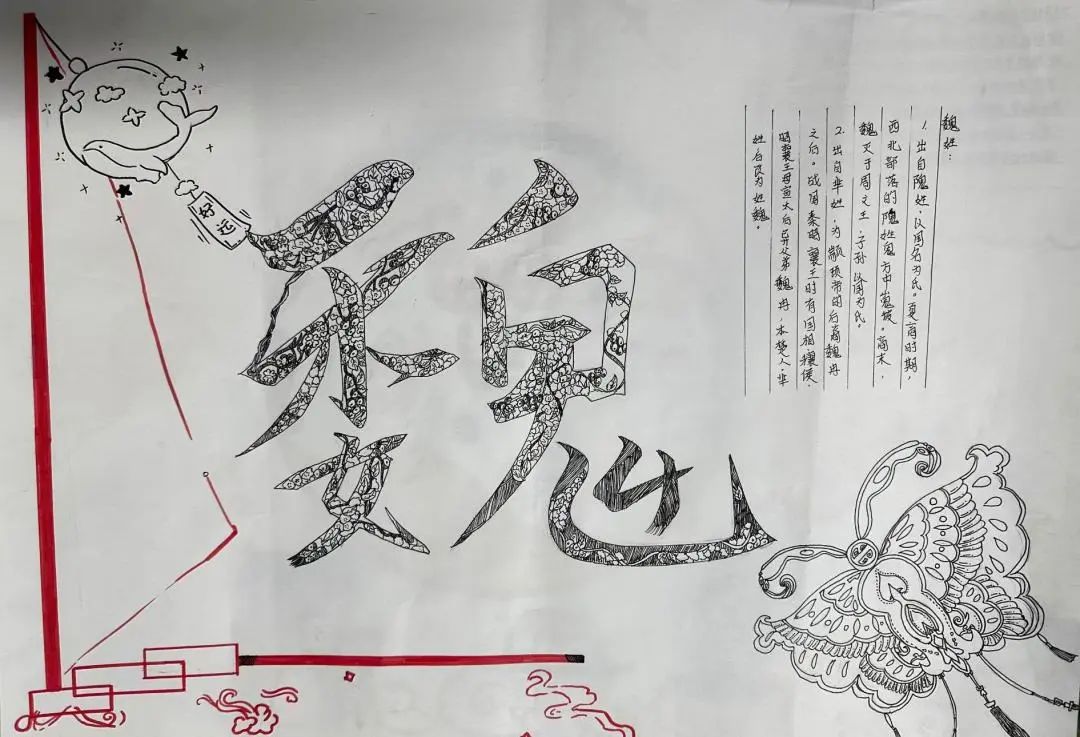 好运
魏
魏姓：
1. 出自隗姓，以国名为氏。夏商时期，
西北部落的隗姓鬼方中嵬坡。商末，
魏灭于周文王，子孙以国为氏。
2. 出自芈姓，为颛顼帝的后裔魏冉
之后。战国秦昭襄王时有国相穰侯，
昭襄王母宣太后异父弟魏冉，本楚人，芈
姓后改为姓魏。